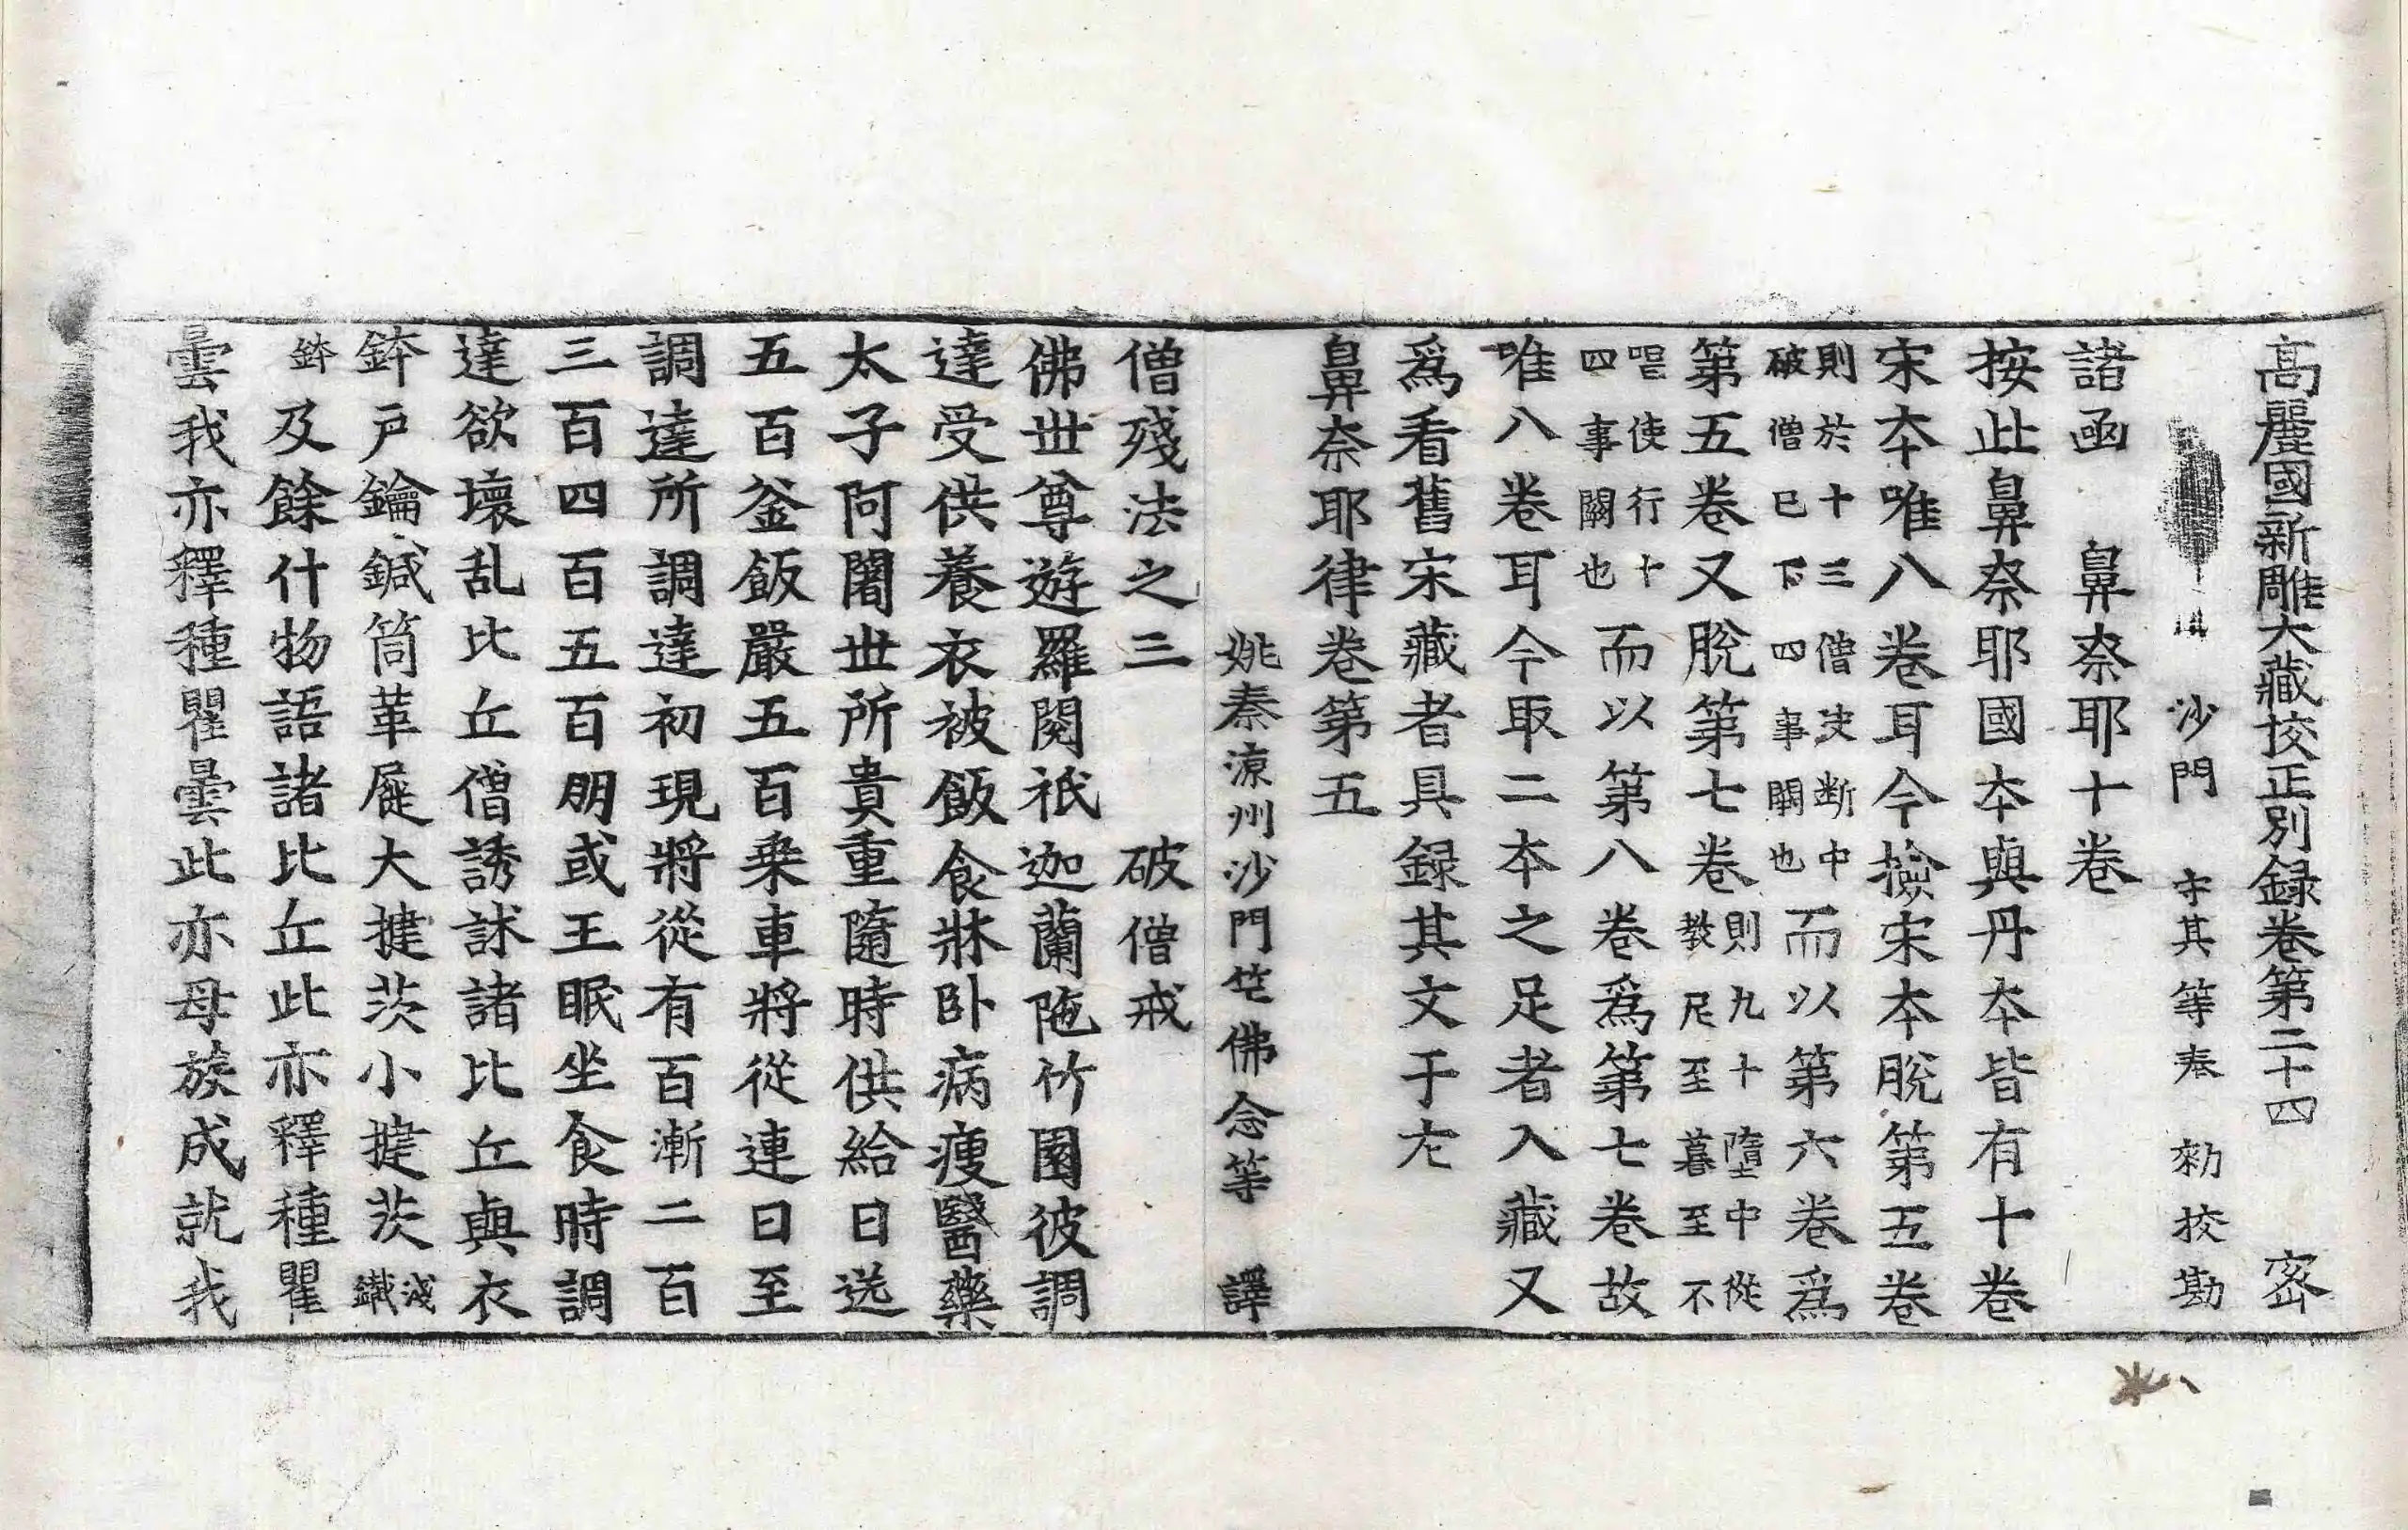 高麗國新雕大藏挍正別録卷第二十四　密
沙門　守其等奉　勑挍勘
諸函　鼻奈耶十卷
按此鼻奈耶國夲與丹夲皆有十卷
宋夲唯八卷耳今撿宋夲脫第五卷
則於十三僧决断中破僧已下四事闕也而以第六卷爲
第五卷又脫第七卷則九十墮中從教尼至暮至不
噁使行十四事闕也而以第八卷爲第七卷故
唯八卷耳今取二夲之足者入藏又
爲看舊宋藏者具録其文于左
鼻奈耶律卷第五
姚秦涼州沙門竺佛念等　譯
僧殘法之三　破僧戒
佛世尊遊羅閱祇迦蘭陁竹園彼調
達受供養衣被飯食牀卧病瘦醫藥
太子阿闍世所貴重隨時供給日送
五百釜飯嚴五百乗車將從連日至
調達所調達初現將從有百漸二百
三百四百五百朋或王眠坐食時調
達欲壞乱比丘僧誘訹諸比丘與衣
鉢戶鑰鍼筒革屣大揵茨小揵茨淺鐵
鉢及餘什物語諸比丘此亦釋種瞿
曇我亦釋種瞿曇此亦母族成就我